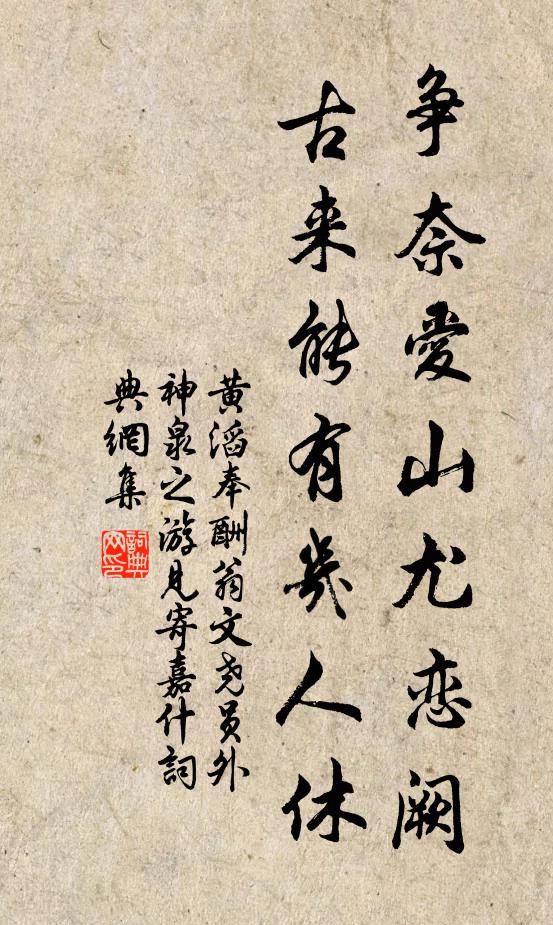 争奈愛山尤恋阙
古来能有幾人休
黄滔奉酬翁文尧员外
神泉之游見寄嘉什詞
典網集
詞典网印